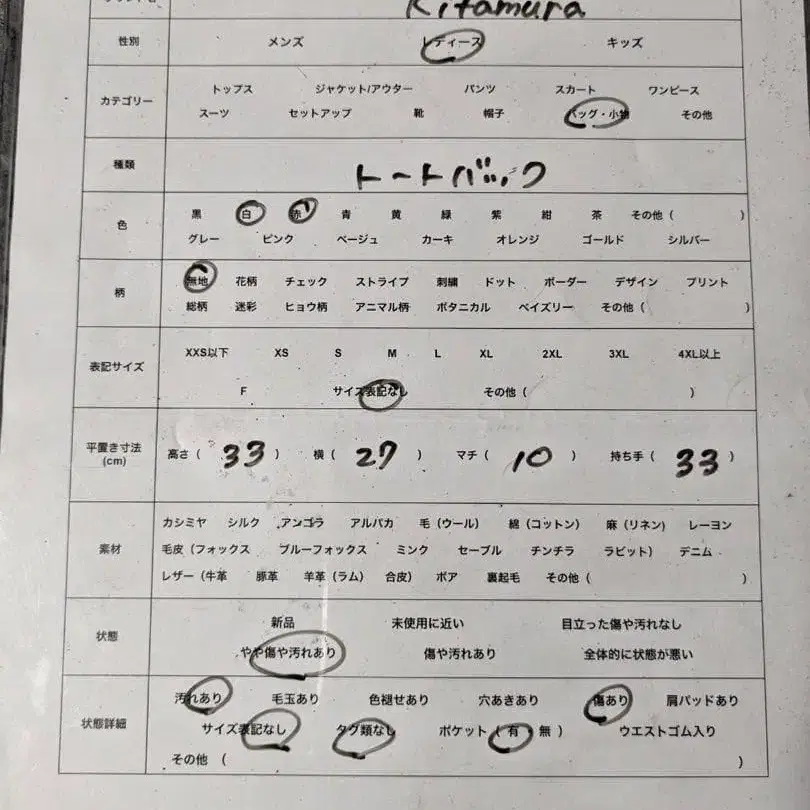 Kitamura
性別 メンズ レディース キッズ
カテゴリー トップス ジャケット/アウター パンツ スカート ワンピース
スーツ セットアップ 靴 帽子 バッグ・小物 その他
種類 トートバック
色 黒 白 赤 青 黄 緑 紫 紺 茶 その他 ( )
グレー ピンク ベージュ カーキ オレンジ ゴールド シルバー
柄 無地 花柄 チェック ストライプ 刺繍 ドット ボーダー デザイン プリント
総柄 迷彩 ヒョウ柄 アニマル柄 ボタニカル ペイズリー その他 ( )
表記サイズ XXS以下 XS S M L XL 2XL 3XL 4XL以上
F サイズ表記なし その他 ( )
平置き寸法 (cm) 高さ ( 33 ) 横 ( 27 ) マチ ( 10 ) 持ち手 ( 33 )
素材 カシミヤ シルク アンゴラ アルパカ 毛 (ウール) 綿 (コットン) 麻 (リネン) レーヨン
毛皮 (フォックス ブルーフォックス ミンク セーブル チンチラ ラビット) デニム
レザー (牛革 豚革 羊革 (ラム) 合皮) ボア 裏起毛 その他 ( )
状態 新品 未使用に近い 目立った傷や汚れなし
やや傷や汚れあり 傷や汚れあり 全体的に状態が悪い
状態詳細 汚れあり 毛玉あり 色褪せあり 穴あきあり 傷あり 肩パッドあり
サイズ表記なし タグ類なし ポケット ( 有・無 ) ウエストゴム入り
その他 ( )